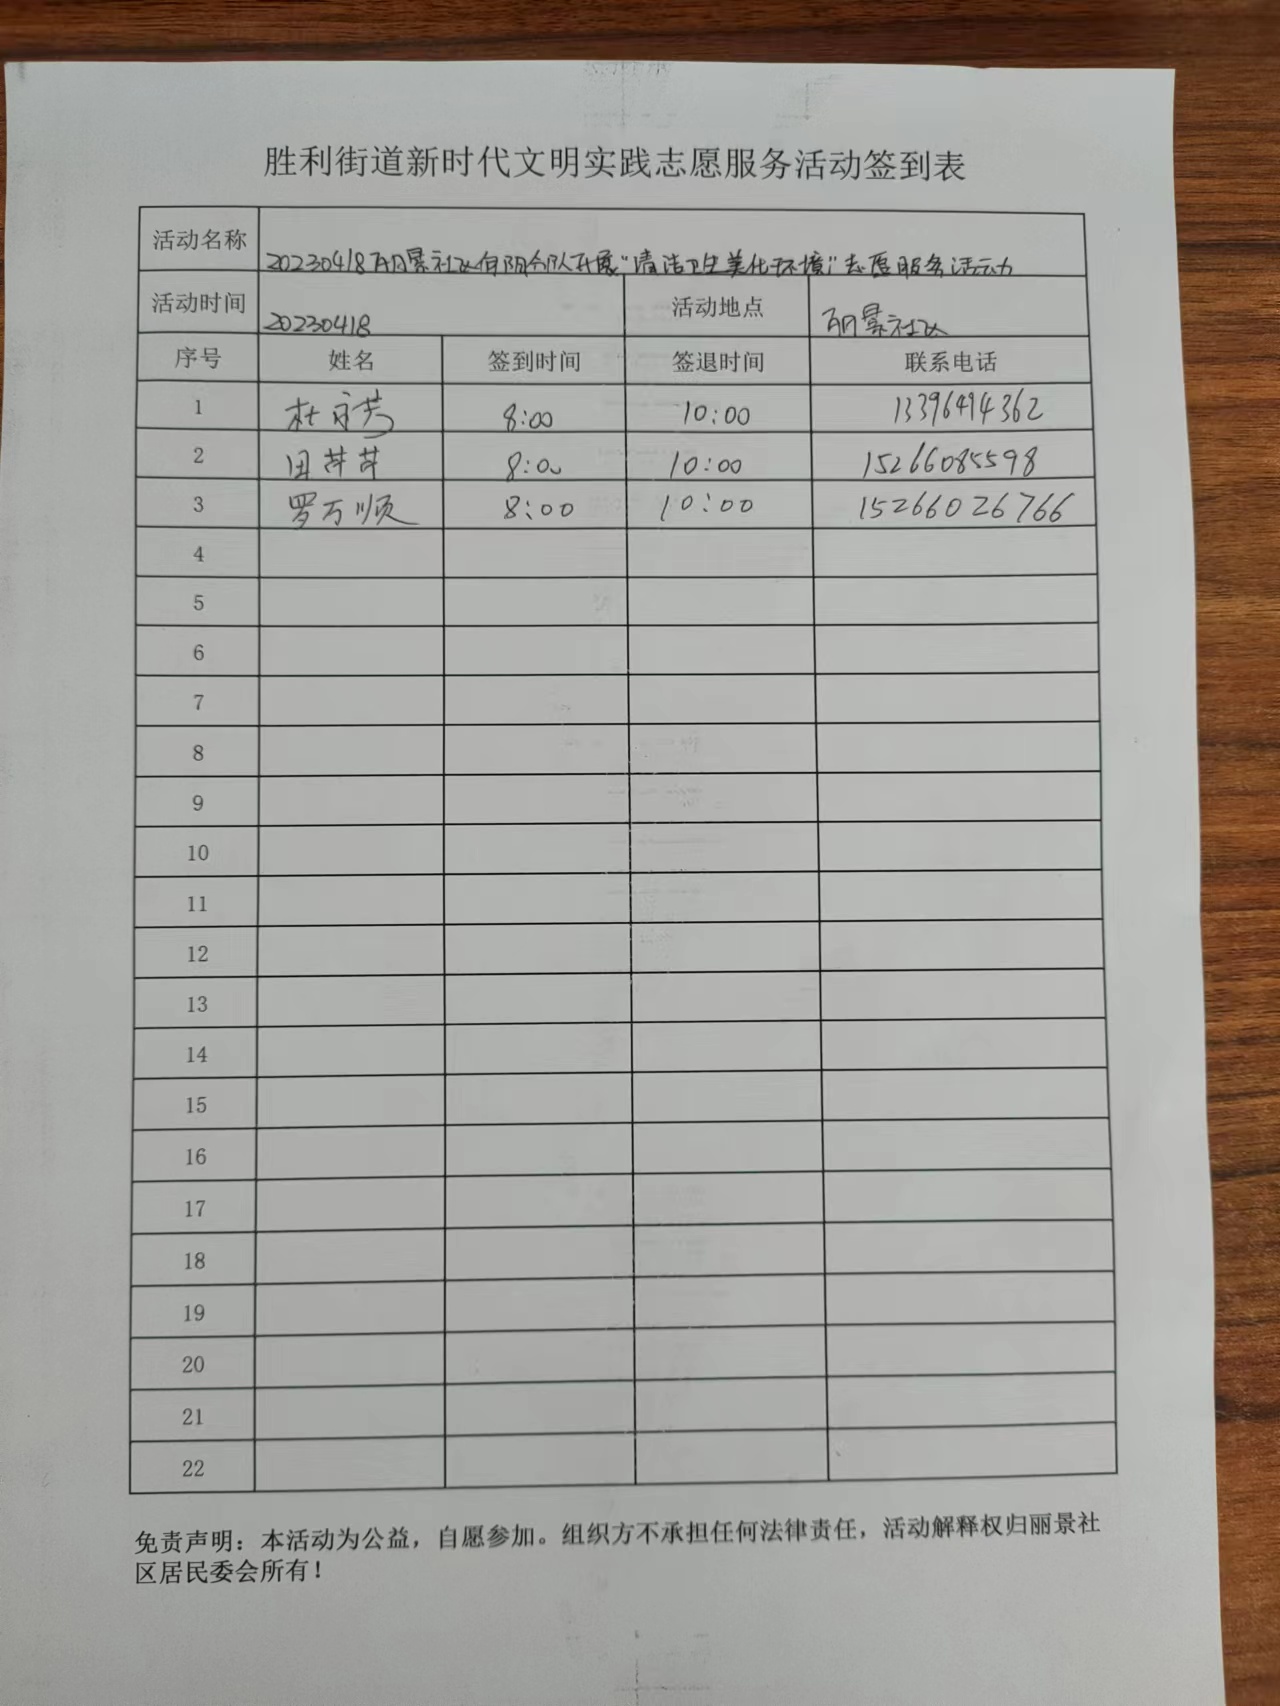 胜利街道新时代文明实践志愿服务活动签到表
活动名称 20230418丽景社区向阳分队开展“清洁卫生美化环境”志愿服务活动
活动时间 20230418 活动地点 丽景社区
序号 姓名 签到时间 签退时间 联系电话
1 杜永芳 8:00 10:00 13396494362
2 田芹芹 8:00 10:00 15266085598
3 罗万顺 8:00 10:00 15266026766
4
5
6
7
8
9
10
11
12
13
14
15
16
17
18
19
20
21
22
免责声明：本活动为公益，自愿参加。组织方不承担任何法律责任，活动解释权归丽景社
区居民委会所有！